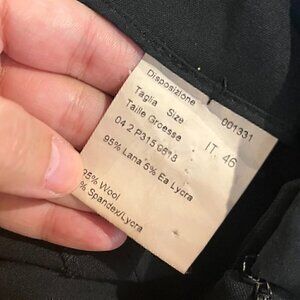 Disposizione 001331
Taglia Size
Taille Groesse IT. 46
04 2 P315 6618
95% Lana 5% Ea Lycra
95% Wool
% Spandex/Lycra